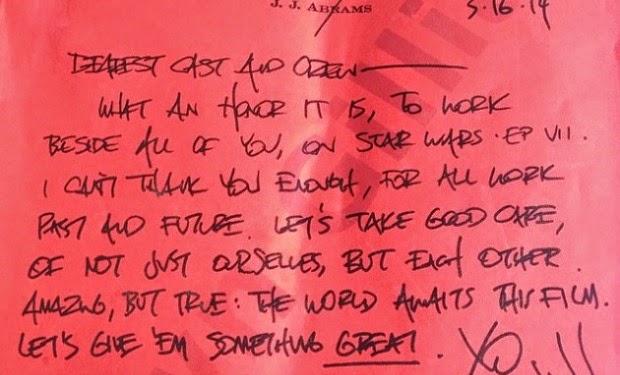 J. J. ABRAMS
5.16.14
DEAREST CAST AND CREW—
WHAT AN HONOR IT IS, TO WORK
BESIDE ALL OF YOU, ON STAR WARS · EP VII.
I CAN'T THANK YOU ENOUGH, FOR ALL WORK
PAST AND FUTURE. LET'S TAKE GOOD CARE,
OF NOT JUST OURSELVES, BUT EACH OTHER.
AMAZING, BUT TRUE: THE WORLD AWAITS THIS FILM.
LET'S GIVE 'EM SOMETHING GREAT.